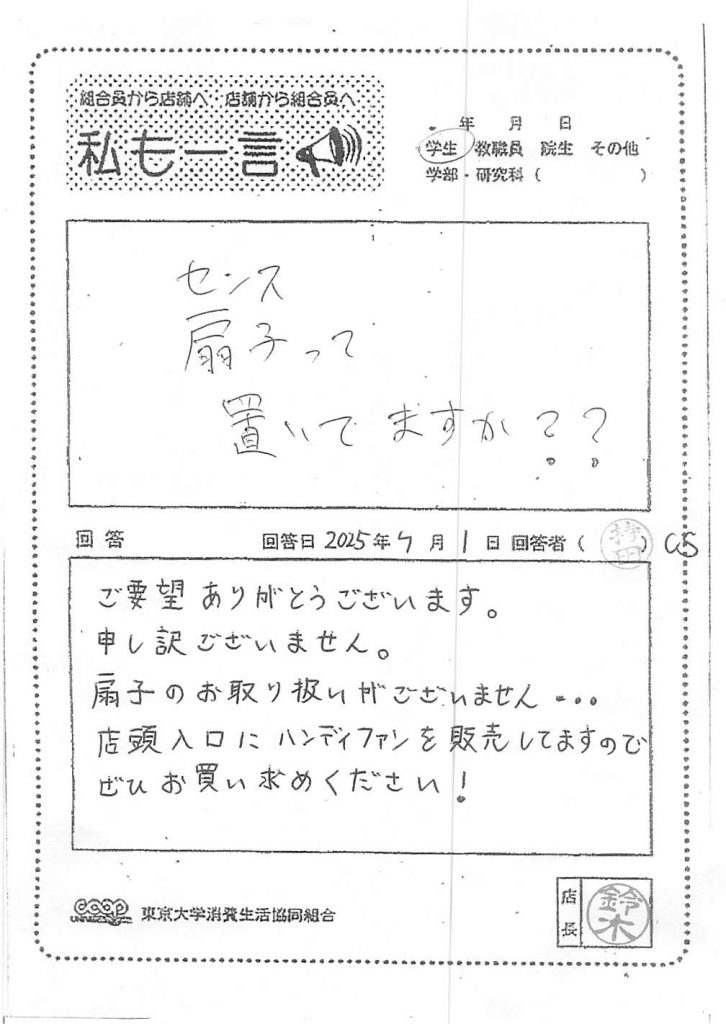 組合員から店舗へ 店舗から組合員へ
私も一言
年 月 日
学生 教職員 院生 その他
学部・研究科( )
センス
扇子って
置いてますか??
回答 回答日 2025年7月1日 回答者( 持田 ) CS
ご要望ありがとうございます。
申し訳ございません。
扇子のお取り扱いがございません...
店頭入口にハンディファンを販売してますので
ぜひお買い求めください!
coop
UNIVERSITY
東京大学消費生活協同組合
店長 鈴木